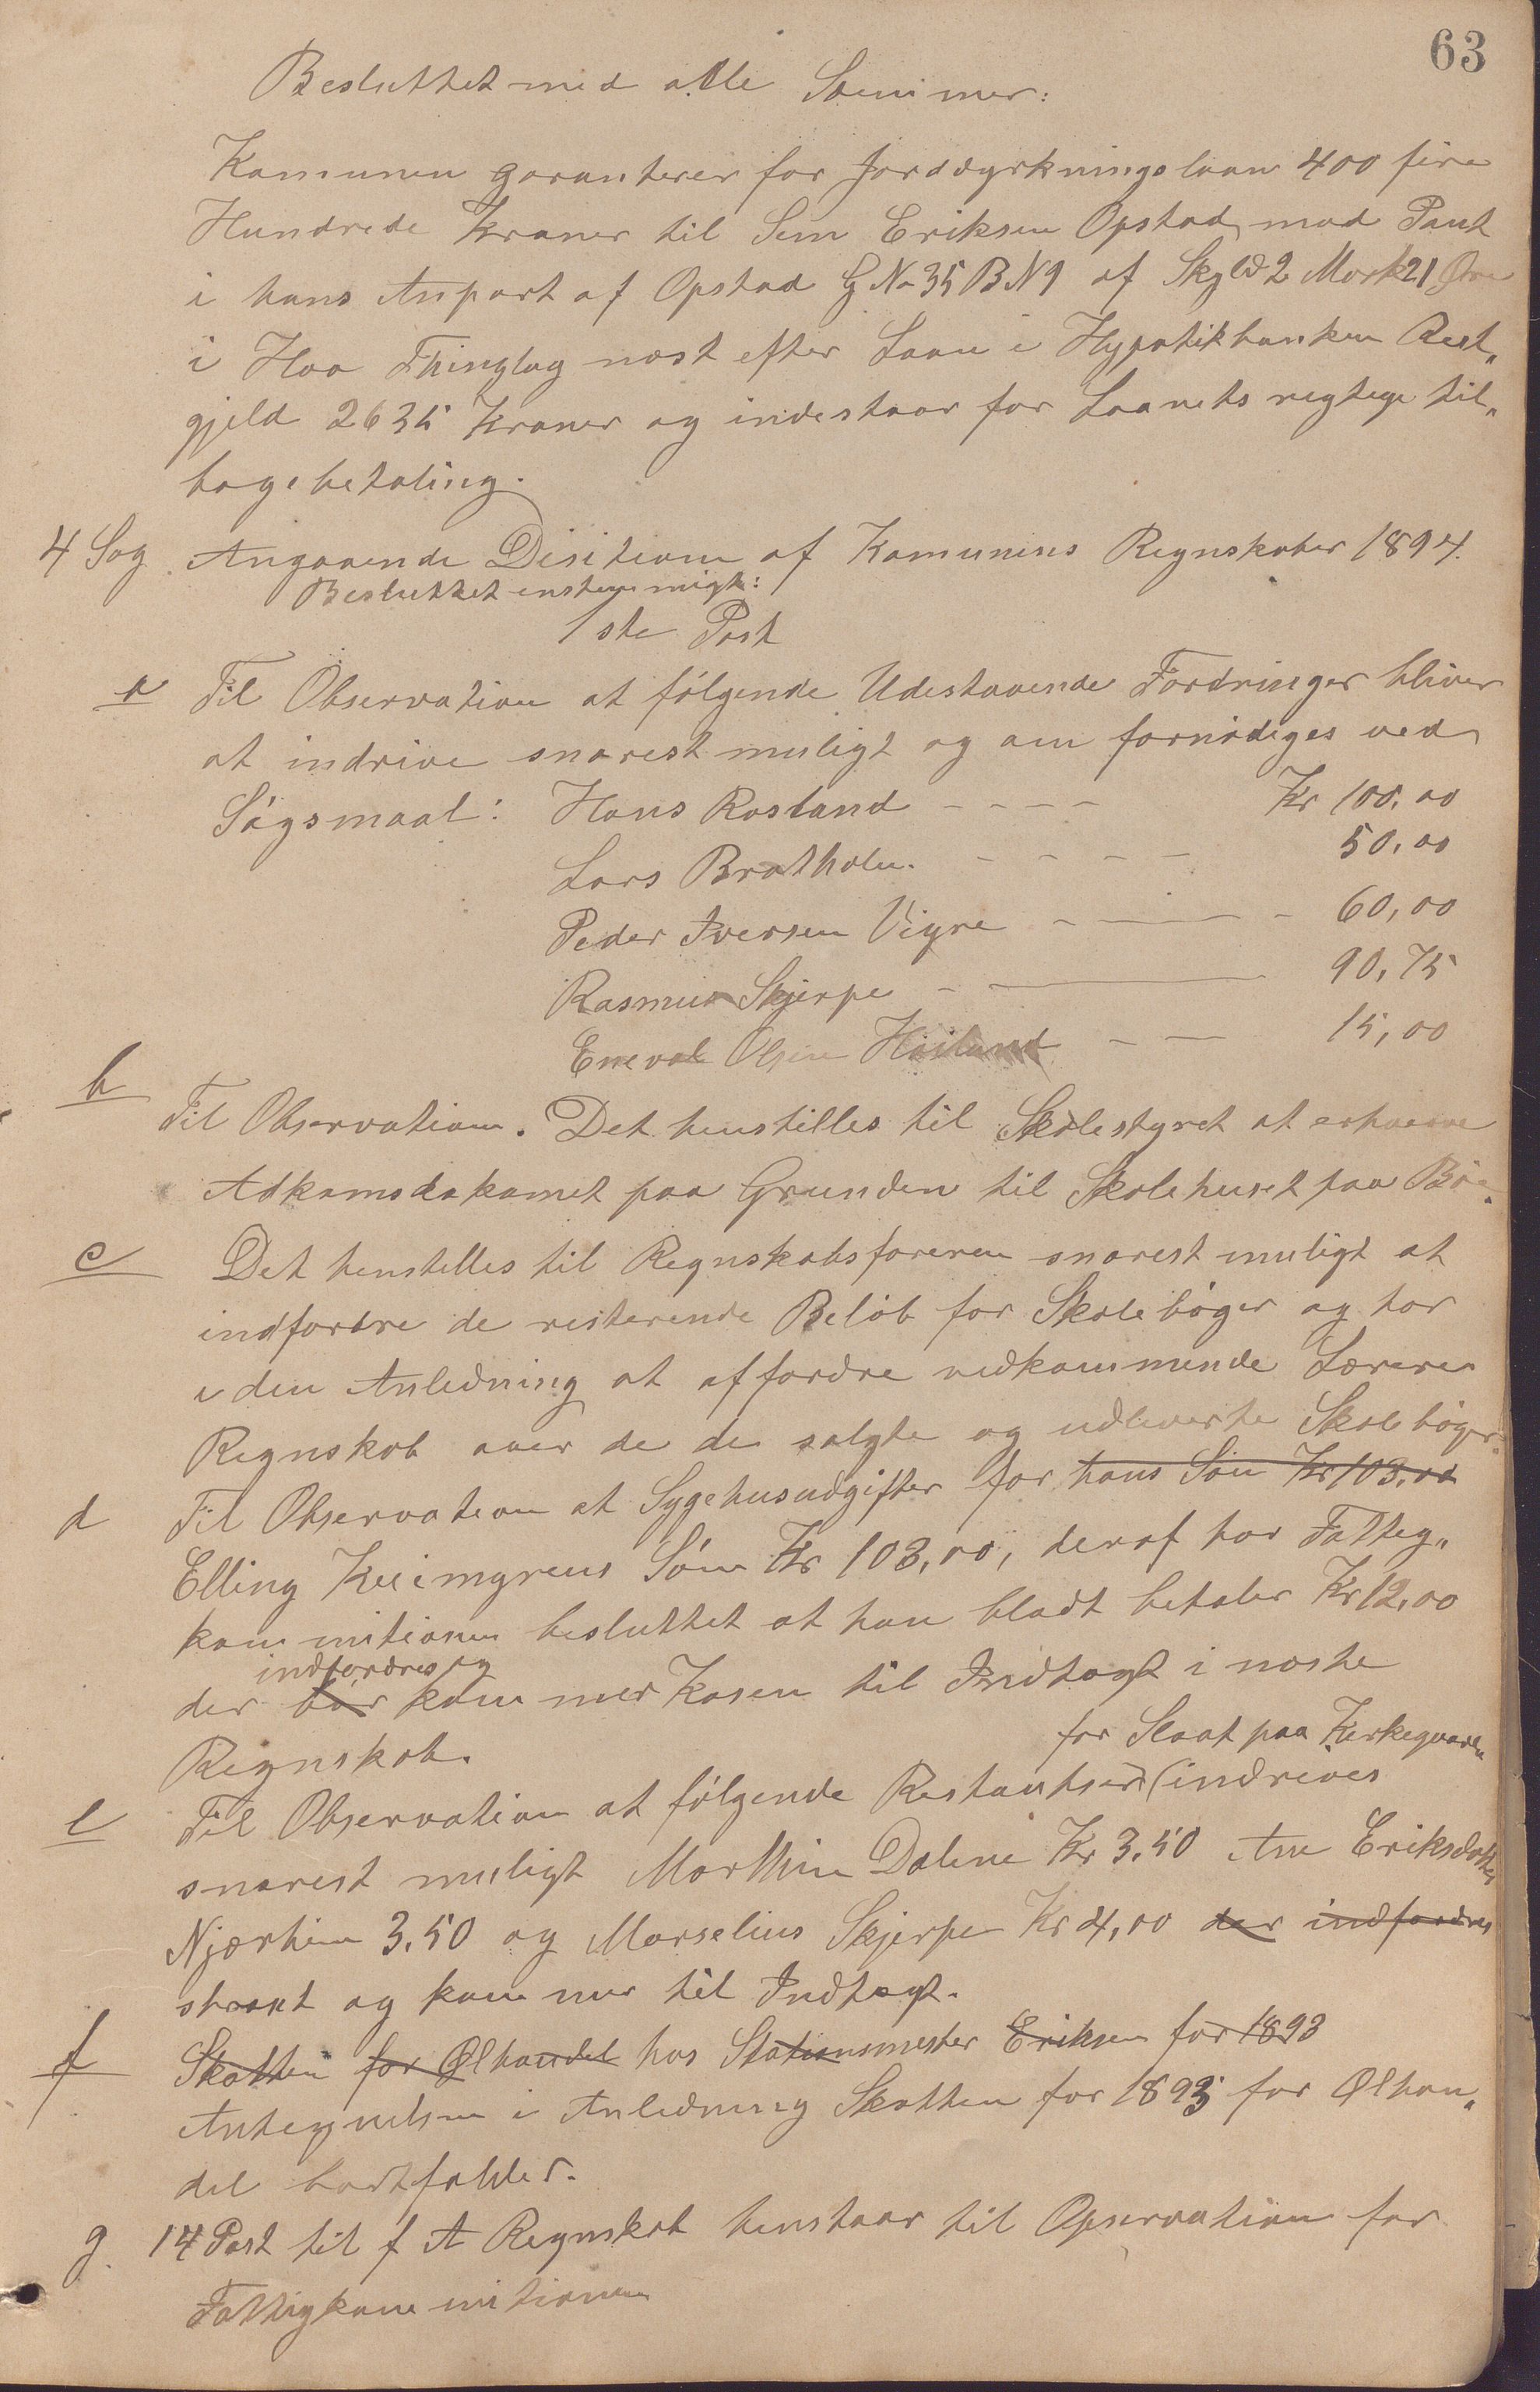 63
Besluttet med alle Stemmer:
Komunen garanterer for Jorddyrkningslaan 400 fire
Hundrede Kroner til Sem Eriksen Opstad mod Pant
i hans Anpart af Opstad G No 35 B N 9 af Skyld 2 Mark 21 Øre
i Haa Thinglag næst efter Laan i Hypotikbanken Rest„
gjeld 2635 Kroner og indestaar for Laanets regtige til„
bagebetaling.
4 Sag Angaaende Disition af Komunens Regnskaber 1894.
Besluttet enstemmigt:
1ste Post
a Til Observation at følgende Udestaaende Fordringer bliver
at indrive snarest muligt og om fornødiges ved
Søgsmaal: Hans Rosland - - - - Kr 100,00
Lars Bratholm. - - - - 50,00
Peder Iversen Vigre - - - 60,00
Rasmus Skjerpe - - 90,75
Eneval Olsen Høiland - - 15,00
b
Til Observation. Det henstilles til Skolestyret at erhverve
Adkomsdokomet paa Grunden til Skolehuset paa Bøe.
c Det henstilles til Regnskabsføreren snarest muligt at
indfordre de resterende Beløb for Skolebøger og har
i den Anledning at affordre vedkommende Lærere
Regnskab over de de solgte og udleverte Skolebøger.
d Til Observation at Sygehusudgifter for hans Søn Kr 103.00
Elling Kviemyrens Søn Kr 103,00, deraf har Fattig„
kommitionen besluttet at han bladt betaler Kr 12,00
indfordres og
der bør kommer Kasen til Indtægt i næste
Regnskab.
for Slaat paa Kirkegaarden
e Til Observation at følgende Restantser (indrives
snarest muligt Marthin Dalene Kr 3.50 Ane Eriksdatter
Njærhim 3.50 og Marselius Skjerpe Kr 4,00 der indfordres
strakt og kommer til Indtægt.
f Skatten for Ølhandel hos Stationsmester Eriksen for 1893
Antegnelsen i Anledning Skatten for 1893 for Ølhan„
del bortfalder.
g. 14 Post til f A Regnskab henstaar til Opservation for
Fattigkommitionen